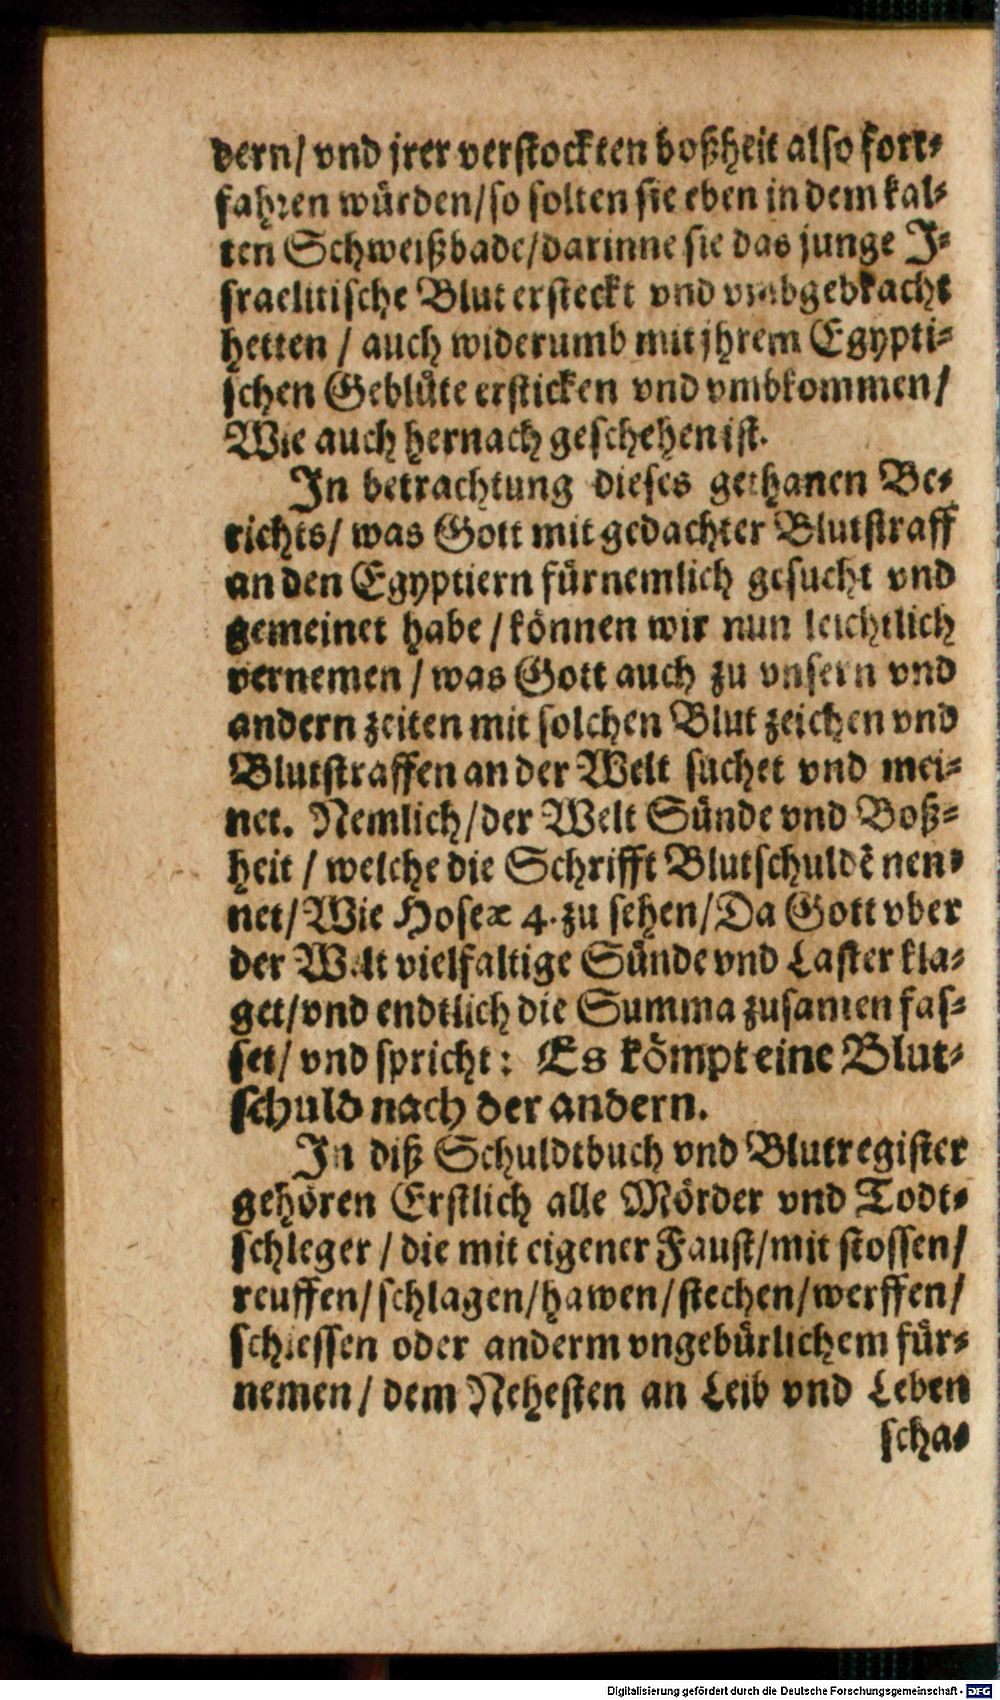 dern/ vnd jrer verstockten boßheit also fort⸗
fahren würden/so solten sie eben in dem kal⸗
ten Schweißbade/darinne sie das junge J⸗
sraelitische Blut ersteckt vnd vmbgebracht
hetten / auch widerumb mit jhrem Egypti⸗
schen Geblüte ersticken vnd vmbkommen/
Wie auch hernach geschehen ist.
Jn betrachtung dieses gethanen Be⸗
richts/ was Gott mit gedachter Blutstraff
an den Egyptiern fürnemlich gesucht vnd
gemeinet habe / können wir nun leichtlich
vernemen / was Gott auch zu vnsern vnd
andern zeiten mit solchen Blut zeichen vnd
Blutstraffen an der Welt suchet vnd mei⸗
net. Nemlich/der Welt Sünde vnd Boß⸗
heit / welche die Schrifft Blutschuldē nen⸗
net/ Wie Hoseæ 4. zu sehen/ Da Gott vber
der Welt vielfaltige Sünde vnd Laster kla⸗
get/vnd endtlich die Summa zusamen fas⸗
set/ vnd spricht: Es kömpt eine Blut⸗
schuld nach der andern.
Jn diß Schuldtbuch vnd Blutregister
gehören Erstlich alle Mörder vnd Todt⸗
schleger / die mit eigener Faust/mit stossen/
reuffen/schlagen/hawen/stechen/werffen/
schiessen oder anderm vngebürlichem für⸗
nemen / dem Nehesten an Leib vnd Leben
scha⸗
Digitalisierung gefördert durch die Deutsche Forschungsgemeinschaft - DFG